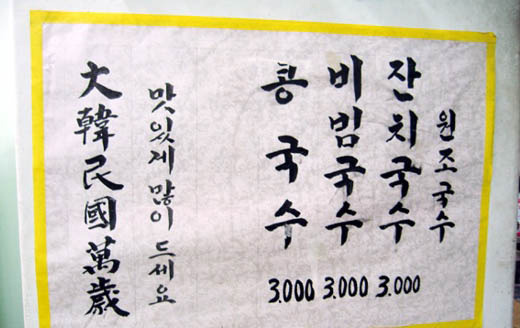 원조국수
잔치국수 3.000
비빔국수 3.000
콩국수 3.000
맛있게 많이 드세요
大韓民國萬歲